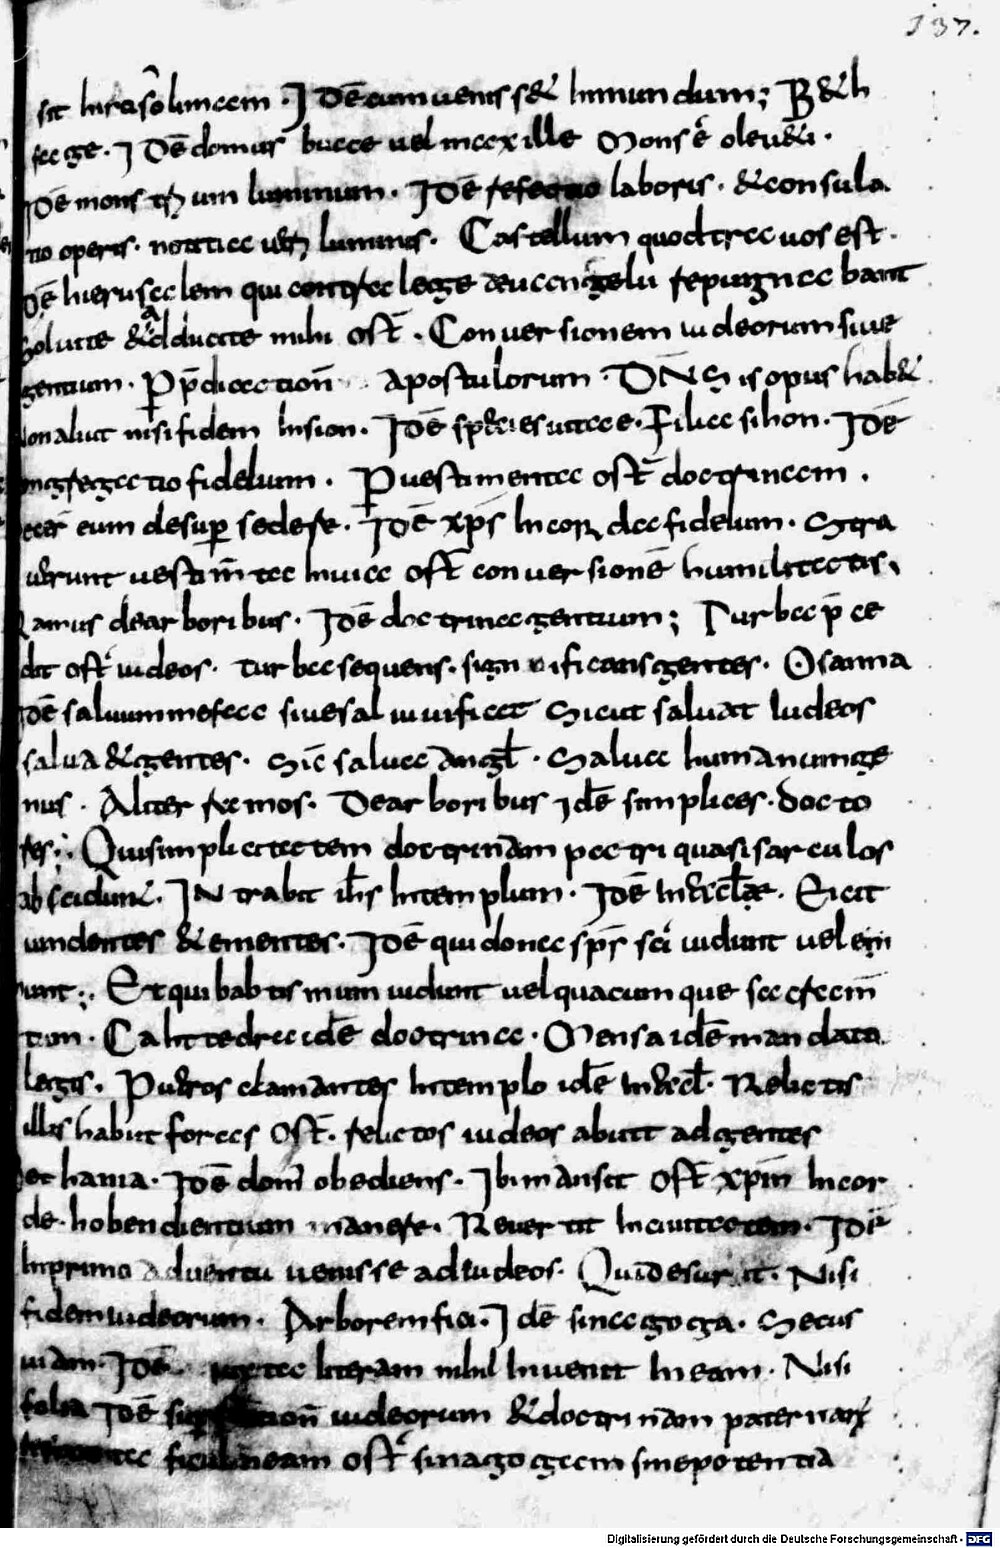 137.
sit hierasolimam . Idē cum uenisset in mundum ; Beth
fage . Idē domus bucce uel maxille Mons ē oleueti .
Idē mons trium luminum . Idē refectio laboris . et consula
tio operis . notitia ueri luminis . Castellum quod tra uos est .
Idē hierusalem qui contra lege deuangelii repugnabant
Soluite et adducite mihi ost̄ . Conuersionem iudeorum siue
gentium . P p̄dication̄ apostulorum . DN̄S is opus habet
Non aliut nisi fidem in sion . Idē species uitae . Filiae sihon . Idē
congregatio fidelium . P uestimenta ost̄ doctrinam .
eum desuper sedere . Idē xp̄s in corda fidelium . Stra
uerunt uestim̄ta in uia ost̄ conuersionē humilitatis ,
Ramus de arboribus . Idē doctrina gentium ; Turba p̄ce
dit ost̄ iudeos . turba sequens . significans gentes . Osanna
Idē saluum me fac siue saluiuificat Sicut saluat iudeos
salua et gentes . Sic salua angl̄ . Salua humanum ge
nus . Aliter ramos . De arboribus idē simplices . docto
res ; Qui simplicitatem doctrinam patri quasi sarculos
abscidunt . IN trabit ih̄s in templum . Idē in aeccl̄ae . Eicit
uindentes et ementes . Idē qui dona sp̄s sc̄i uidunt uel em
unt ; Et qui babtismum uidunt uel quacumque sacram̄
tum . Cahitedra idē doctrina . Mensa idē mandata
legis . Pueros clamantes in templo idē in aeccl̄ . Relictis
illis habiit foras ost̄ . relictos iudeos abiit ad gentes
Bethania . Idē dom̄ obediens . Ibi mansit ost̄ xp̄m in cor
de . hobendientium manere . Reuertit in ciuitatem . Idē
in primo aduentu uenisse ad iudeos . Quid esuriit . Nisi
fidem iudeorum . Arborem fici . Idē sinagoga . Secus
uiam . Idē iuxta literam nihil inuenit in eam . Nisi
folia Idē iudeorum et doctrinam paternarum
ficulneam ost̄ sinagogam sine potentia
Digitalisierung gefördert durch die Deutsche Forschungsgemeinschaft - DFG